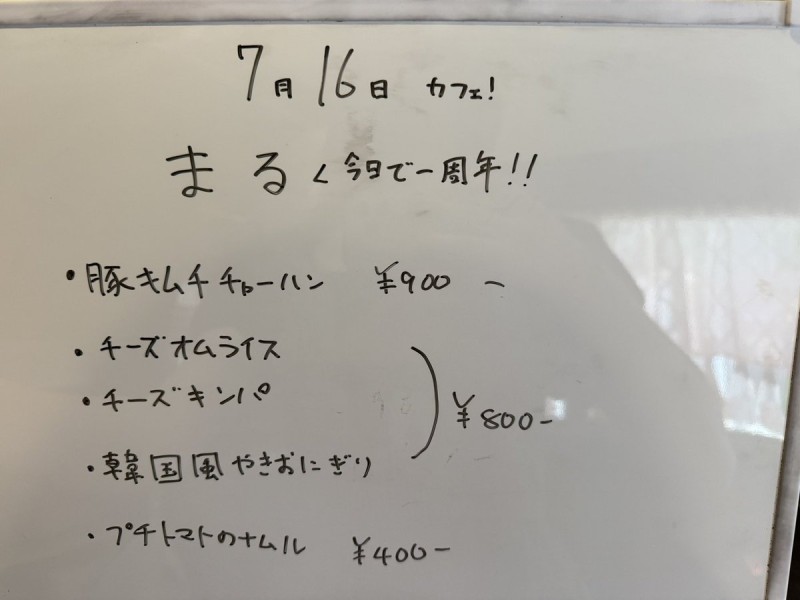 7月16日 カフェ!
まる く 今日で一周年!!
・豚キムチチャーハン ¥900 ー
・チーズオムライス
・チーズキンパ
¥800-
・韓国風やきおにぎり
・プチトマトのナムル ¥400-